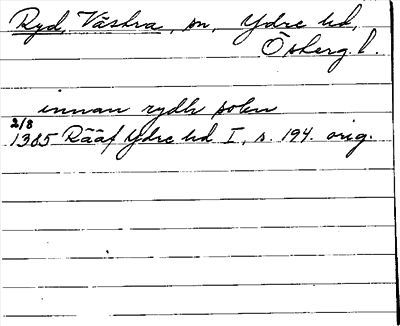 Ryd, Västra, sn, Ydre hd,
Östergl.
innan rydh sokn
2/8
1385 Rääf Ydre hd I, s. 194. orig.